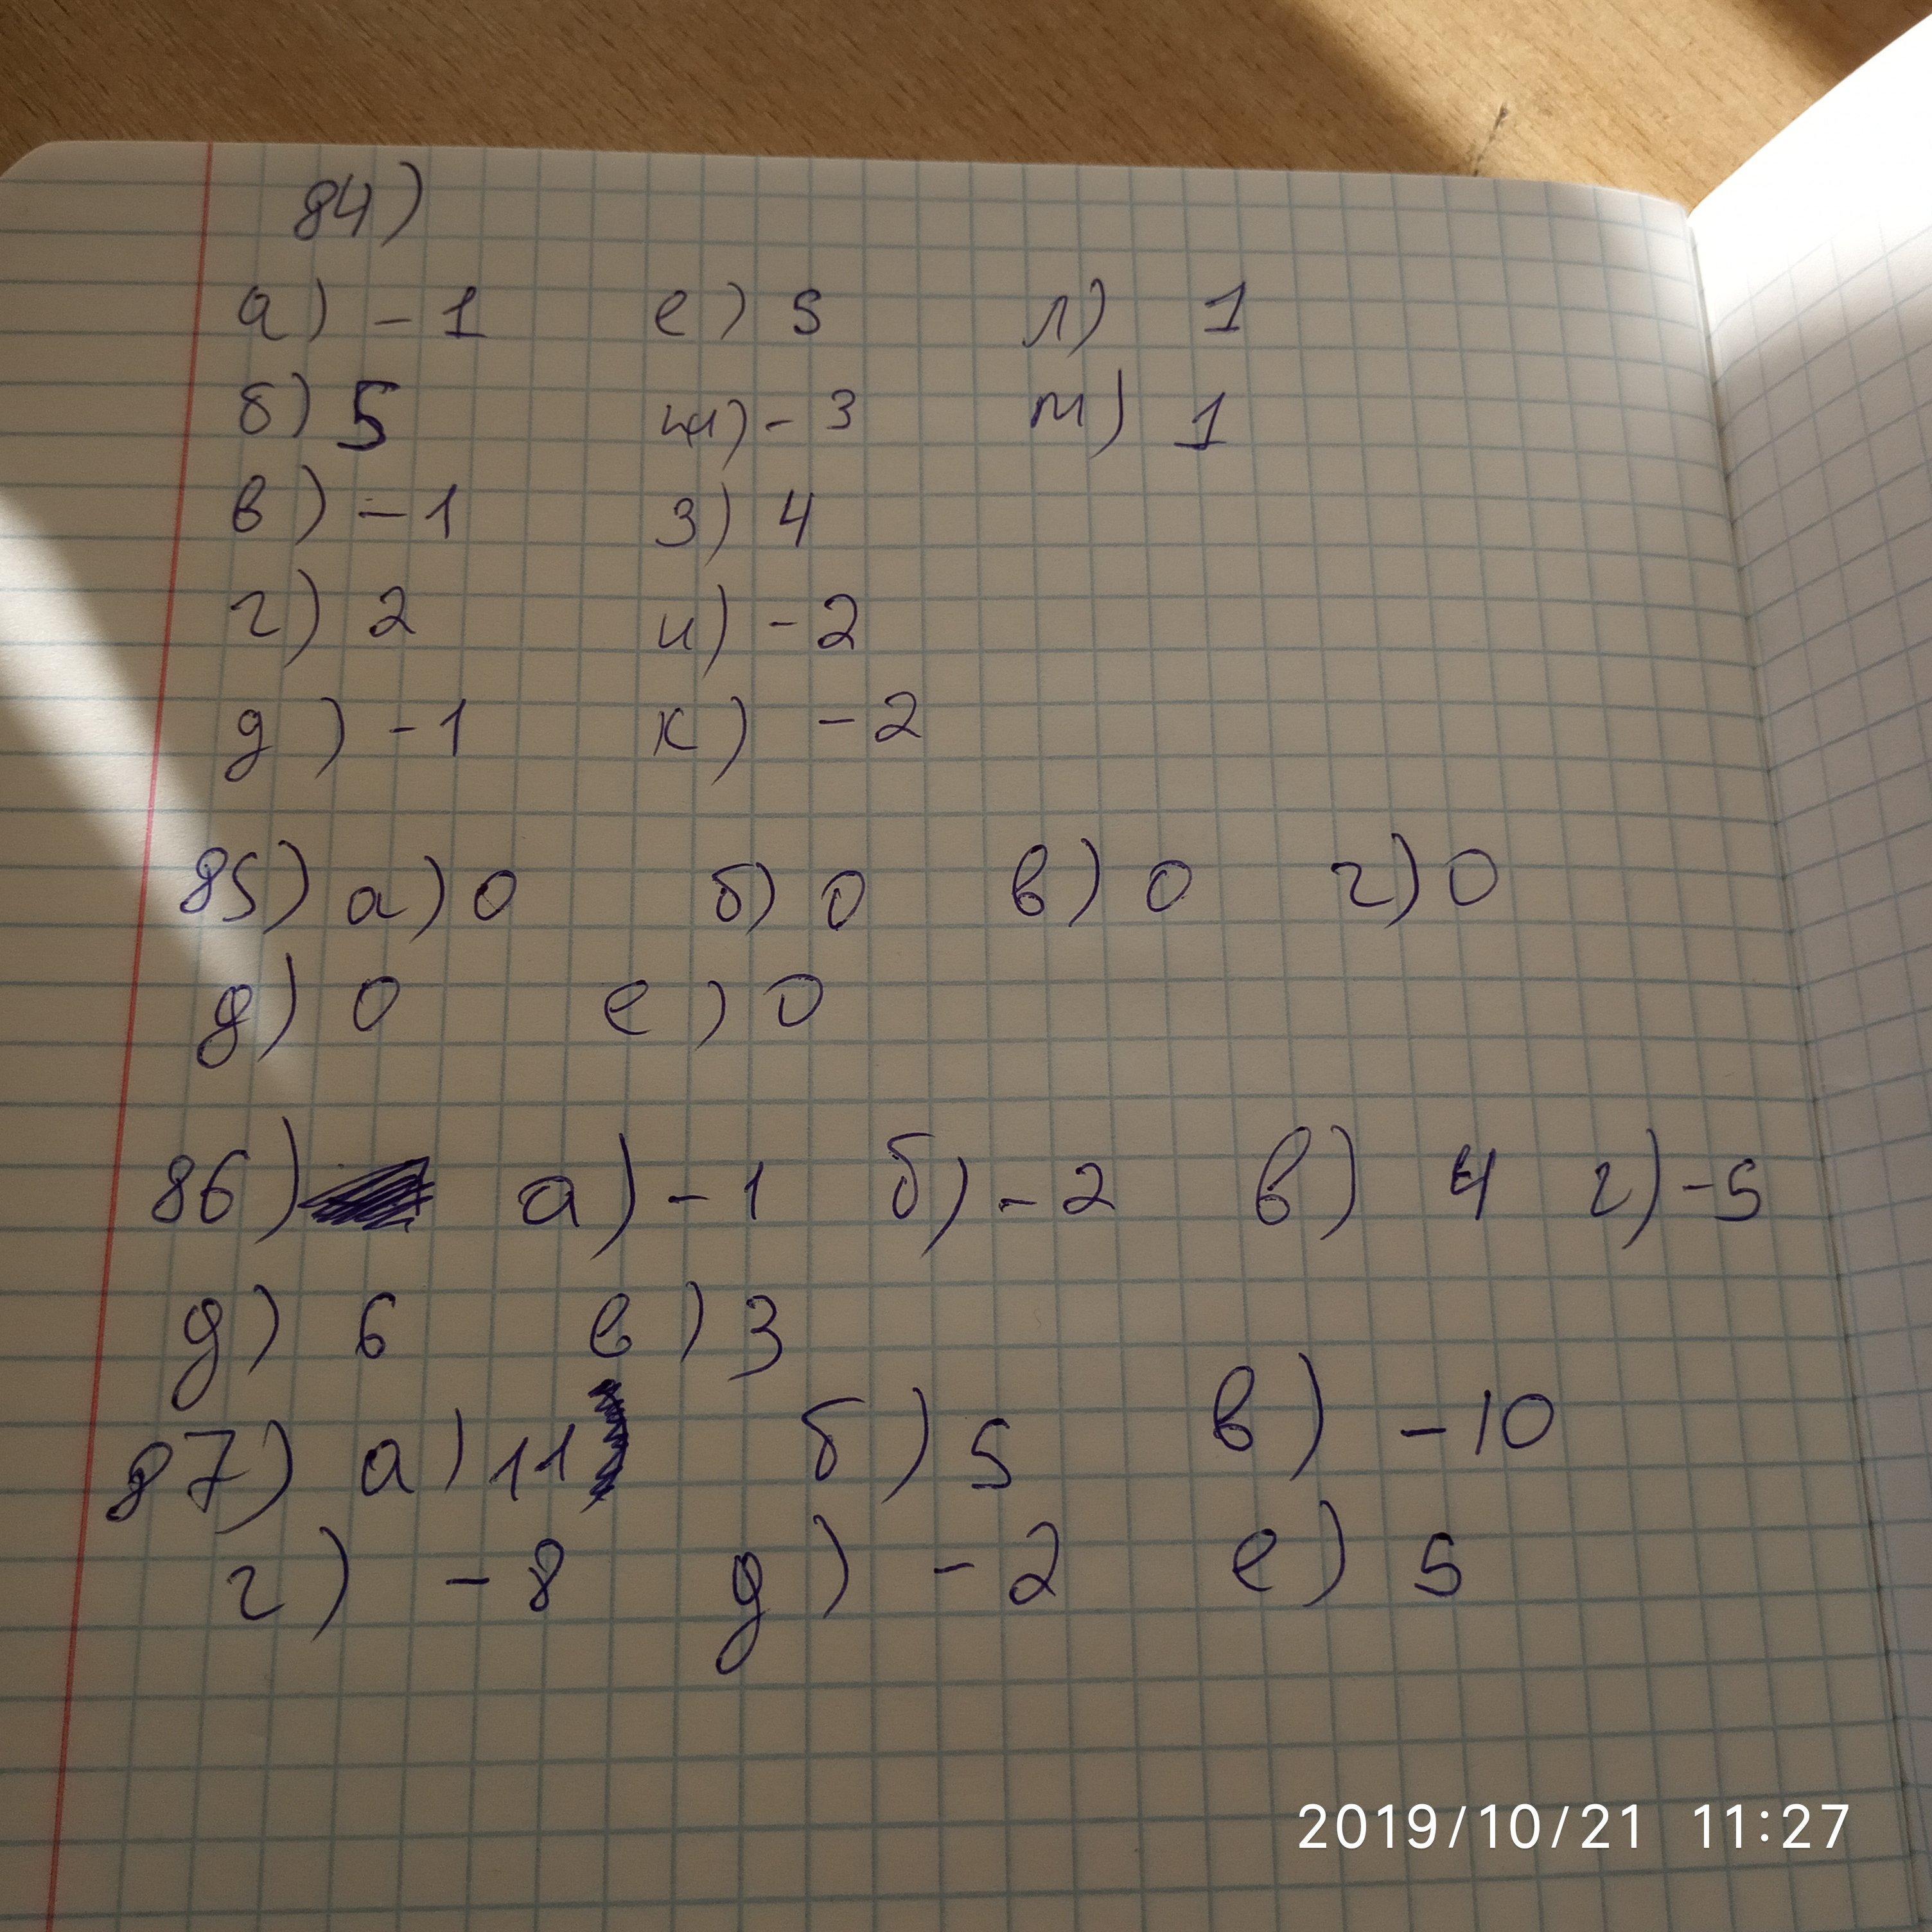 84)
а) -1 е) 5 л) 1
б) 5 ж) -3 м) 1
в) -1 з) 4
г) 2 и) -2
д) -1 к) -2
85) а) 0 б) 0 в) 0 г) 0
д) 0 е) 0
86) а) -1 б) -2 в) 4 г) -5
д) 6 е) 3
87) а) 11 б) 5 в) -10
г) -8 д) -2 е) 5
2019/10/21 11:27